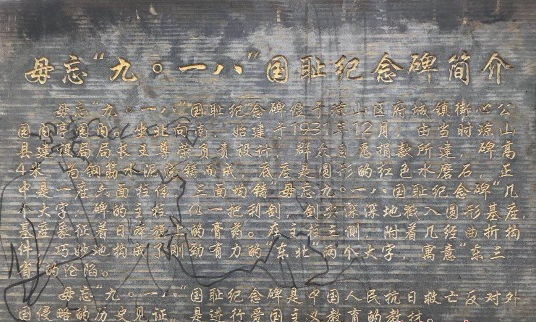 毋忘“九。一八”国耻纪念碑简介
毋忘“九。一八”国耻纪念碑位于琼山区府城镇街心公
国 坐北向南，始建于1931年12月，由当时琼山
县建设局局长王 负责设计，群众自愿捐款所建，碑高
4米， 钢筋水泥 而成，底座是圆形的红色水磨石，正
中是一座六面柱体，三面均铸“毋忘九。一八国耻纪念碑”几
个大字，碑的主柱 一把利剑，剑尖深深地戳入圆形基座，
基座象征着日本 的膏药。在主柱三侧，附着几经曲折构
件，巧妙地构成了刚劲有力的“东北”两个大字，寓意“东三
省”的沦陷。
毋忘“九。一八”国耻纪念碑是中国人民抗日救亡反对外
国侵略的历史见证，是进行爱国主义教育的教材。